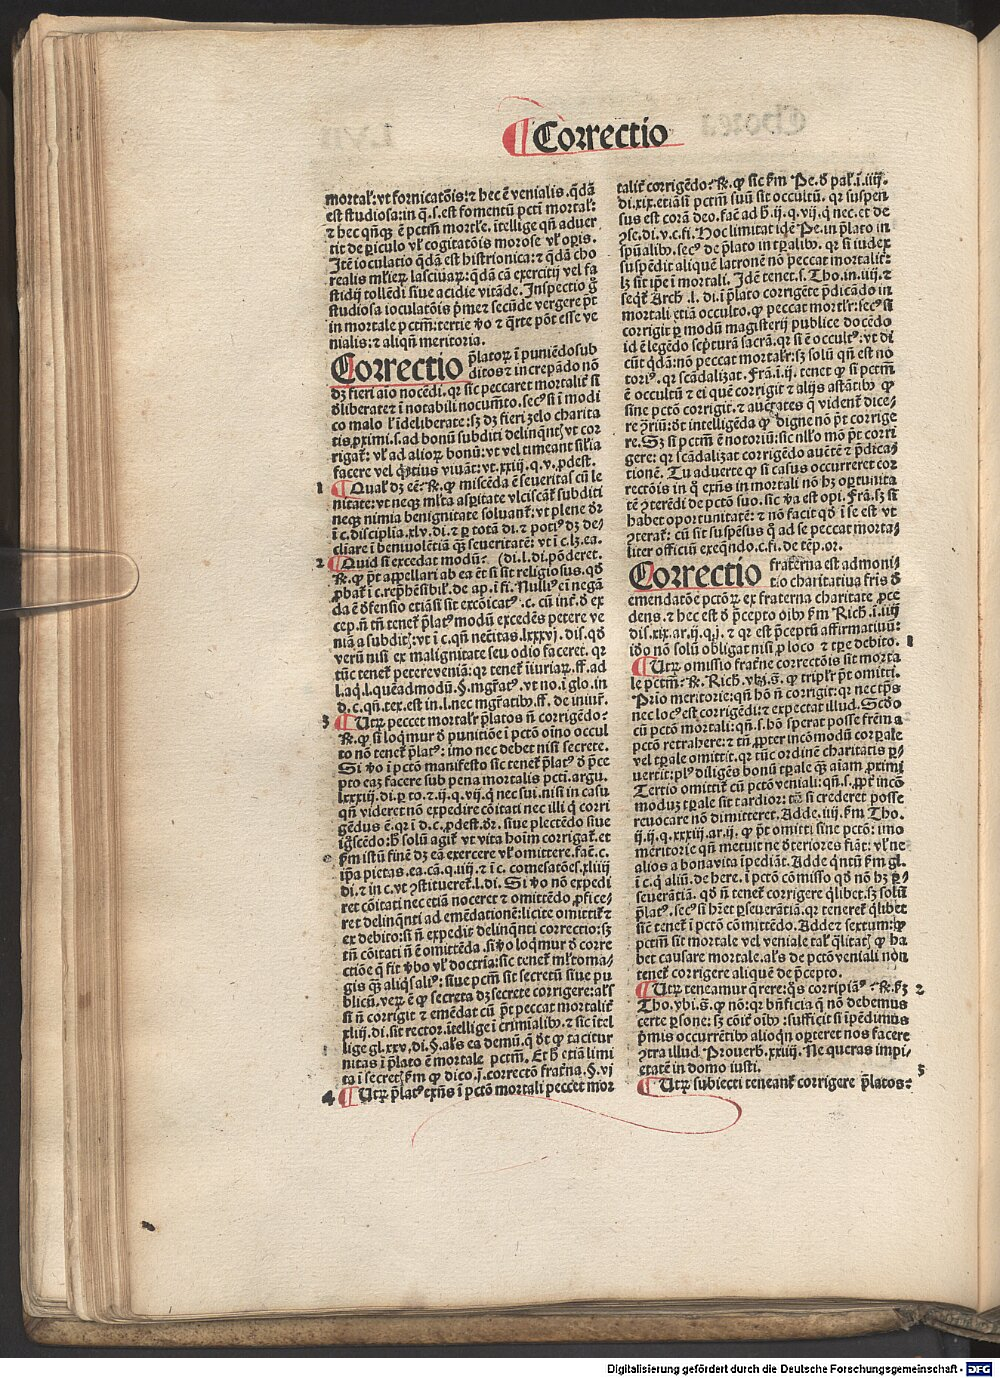 Correctio
mortał: vt fornicatōis: ⁊ hec ē venialis. q̄dā
est studiosa: in q̄. s. est fomentū pcti mortał:
⁊ hec qñqꝫ ē pctm̄ mortłe. ītellige qñ aduer
tit de ꝑiculo vł cogitatōis morose vł oꝑis.
Itē ioculatio q̄dā est histrionica: ⁊ q̄dā cho
realis młieꝝ lasciuaꝝ: q̄dā cā exercitij vel fa
stidij tollēdi siue acidie vitāde. Inspectio g̊
studiosa ioculatōis pͥme ⁊ secūde vergere pt̄
in mortale pctm̄: tertie ꝟo ⁊ q̄rte pōt esse ve
nialis: ⁊ aliqñ meritoria.
Correctio p̄latoꝝ ī puniēdo sub
ditos ⁊ increpādo nō
dꝫ fieri aīo nocēdi. qꝛ sic peccaret mortalit̄ si
ꝺliberate ⁊ ī notabili nocumēto. secꝰ si ī modi
co malo ł ideliberate: sꝫ dꝫ fieri zelo charita
tis ꝓximi. s. ad bonū subditi delinqnt̄ vt cor
rigat̄: vł ad alioꝝ bonū: vt vel timeant siłia
facere vel q̄etius viuāt: vt. xxiij. q. v. ꝓdest.
1 ¶ Qualʼ dꝫ eē: ℞. ꝙ miscēda ē seueritas cū le
nitate: vt neqꝫ młta asꝑitate vlciscāt̄ subditi
neqꝫ nimia benignitate soluant̄: vt plene ꝺr̄
ī c. disciplia. xlv. di. ⁊ ꝑ totā di. ⁊ potiꝰ dꝫ de⸗
cliare ī beniuolētiā qꝫ̄ seueritatē: vt ī c. lꝫ. ea.
2 ¶ Quid si excedat modū: (di. l. di. pōderet.
℞. ꝙ pt̄ appellari ab ea ēt si sit religiosus. qꝺ
ꝓbat̄ ī c. rep̄hēsibił. de ap. ī fi. Nulliꝰ eī negā
da ē ꝺfensio etiā si sit excōicatꝰ. c. cū int̄. ꝺ ex
cep. ñ tñ tenet̄ p̄latꝰ modū excedēs petere ve
niā a subdit̄: vt ī c. qñ nec̄itas. lxxxvj. dis. qꝺ
verū nisi ex malignitate seu odio faceret. qꝛ
tūc tenet̄ petere veniā: qꝛ tenet̄ iiuriaꝝ. ff. ad
l. aq̄. l. quēadmodū. §. mgr̄atꝰ. vt no. ī glo. in
d. c. qñ. tex. est in. l. nec mgr̄atibꝰ. ff. de iniur̄.
3 ¶ Utꝝ peccet mortalʼr p̄latꝰ ñ corrigēdo:
℞. ꝙ si loq̄mur ꝺ punitiōe ī pctō oīno occul
to nō tenet̄ p̄latꝰ: imo nec debet nisi secrete.
Si ꝟo ī pctō manifesto sic tenet̄ p̄latꝰ ꝺ p̄ce
pto eaꝫ facere sub pena mortalis pcti. argu.
lxxxiij. di. ꝑ to. ⁊. ij. q. vij. q̄ nec sui. nisi in casu
qñ videret nō expedire cōitati nec illi q̄ corri
gēdus ē. qꝛ ī d. c. ꝓdest. ꝺr̄. siue plectēdo siue
ig̊scēdo: h̄ solū agit̄ vt vita hoīm corrigat̄. et
ẜm istū finē dꝫ ea exercere vł omittere. fac̄. c.
ip̄a pietas. ea. cā. q. iiij. ⁊ ī c. comesatōes. xliiij
di. ⁊ in c. vt ꝯstitueret̄. l. di. Si ꝟo nō expedi
ret cōitati nec etiā noceret ⁊ omittēdo ꝓfice⸗
ret delinqn̄ti ad emēdationē: licite omittit̄ ⁊
ex debito: si ñ expedit delinqn̄ti correctio: sꝫ
tñ cōitati ñ ē omittēda. si ꝟo loq̄mur ꝺ corre
ctiōe q̄ fit ꝟbo vł doctria: sic tenet̄ młto ma⸗
gis qꝫ̄ aliq̄s alīꝰ: siue pctm̄ sit secretū siue pu
blicū. verꝝ ē ꝙ secreta dꝫ secrete corrigere: alʼs
si ñ corrigit ⁊ emēdat cū pt̄ peccat mortalit̄
xliij. di. sit rector. ītellige ī crīmalibꝰ. ⁊ sic ītel
lige gl. xxv. di. §. alʼs ea demū. q̄ ꝺt ꝙ tacitur
nitas ī p̄lato ē mortale pctm̄. Et h̄ etiā limi
ta ī secret̄ ẜm ꝙ dico. j. correctō frat̄na. §. vj
4 ¶ Utꝝ p̄latꝰ exn̄s ī pctō mortali peccet mor
talit̄ corrigēdo: ℞. ꝙ sic ẜm Pe. ꝺ pał. ī. iiij.
di. xix. etiā si pctm̄ suū sit occultū. qꝛ suspen
sus est corā deo. fac̄ ad h̄. ij. q. vij. q̄ nec. et de
ꝯse. di. v. c. fi. Hoc limitat idē Pe. in p̄lato in
sp̄ualibꝰ. secꝰ de p̄lato in tꝑalibꝰ. qꝛ si iudex
suspēdit aliquē latronē nō peccat mortalit̄:
lꝫ sit ip̄e ī mortali. Idē tenet. s. Tho. in. iiij. ⁊
seqt̄ Arch̄. l. di. ī p̄lato corrigēte p̄dicādo in
mortali etiā occulto. ꝙ peccat mortłr: secꝰ si
corrigit ꝑ modū magisterij publice docēdo
id ē legēdo sc̄pturā sacrā. qꝛ si ē occultꝰ: vt di
cūt q̄dā: nō peccat mortalʼr: sꝫ solū qñ est no
toriꝰ. qꝛ scādalizat. Frā. ī. ij. tenet ꝙ si pctm̄
ē occultū ⁊ ei quē corrigit ⁊ alijs astātibꝰ ꝙ
sine pctō corrigit. ⁊ auc̄tates q̄ vident̄ dice⸗
re ꝯriū: ꝺt intelligēda ꝙ digne nō pt̄ corrige
re. Sꝫ si pctm̄ ē notoriū: sic nłło mō pt̄ corri
gere: qꝛ scādalizat corrigēdo auc̄tē ⁊ p̄dica⸗
tionē. Tu aduerte ꝙ si casus occurreret cor
rectōis in q̊ exn̄s in mortali nō hꝫ oꝑtunita
tē ꝯterēdi de pctō suo. sic ꝟa est opi. Frā. sꝫ si
habet oportunitatē: ⁊ nō facit qꝺ ī se est vt
ꝯterat̄: cū sit suspēsus q̊ ad se peccat morta⸗
liter officiū exeq̄ndo. c. fi. de tēp. or.
Correctio frat̄na est admoni⸗
tio charitatiua fris̄ ꝺ
emendatōe pctōꝝ ex fraterna charitate ꝓce
dens. ⁊ hec est ꝺ p̄cepto oībꝰ ẜm Rich. ī. iiij
dis. xix. ar. ij. q. j. ⁊ qꝛ est p̄ceptū affirmatiuū:
iꝺo nō solū obligat nisi ꝓ loco ⁊ tꝑe debito. 1
¶ Utꝝ omissio frat̄ne correctōis sit morta
le pctm̄: ℞. Rich. vbi. s̄. ꝙ triplʼr pt̄ omitti.
Prīo meritorie: qñ hō ñ corrigit: qꝛ nec tp̄s
nec locꝰ est corrigēdi: ⁊ expectat illud. Scꝺo
cū pctō mortali: qñ. s. hō sperat posse frēm a
pctō retrahere: ⁊ tñ ꝓpter incōmodū corꝑale
vel tꝑale omittit. qꝛ tūc ordinē charitatis ꝑ⸗
uertit: plꝰ diligēs bonū tꝑale qꝫ̄ aiam ꝓximi
Tertio omittit̄ cū pctō veniali: qñ. s. ꝓpt̄ incō
modūꝫ tꝑale sit tardior: tm̄ si crederet posse
reuocare nō dimitteret. Adde. iiij. ẜm Tho.
ij. ij. q. xxxiij. ar. ij. ꝙ pt̄ omitti sine pctō: imo
meritorie qñ metuit ne ꝺteriores fiāt: vł ne
alios a bonavita īpediāt. Adde q̄ntū ẜm gl.
ī c. q̄ aliū. de here. ī pctō cōmisso qꝺ nō hꝫ ꝑ⸗
seuerātiā. qꝺ ñ tenet̄ corrigere q̄libet. sꝫ solū
p̄latꝰ. secꝰ si hr̄et ꝑseuerātiā. qꝛ teneret̄ q̄libet
sic̄ tenet̄ ī pctō cōmittēdo. Adde ⁊ sextum: ꝙ
pctm̄ sit mortale vel veniale talʼ q̄litatꝭ ꝙ ha
bet causare mortale. alʼs de pctō veniali nōn
tenet̄ corrigere aliquē de p̄cepto.
¶ Utꝝ teneamur q̄rere: q̊s corripiāꝰ: ℞. ẜꝫ 2
Tho. vbi. s̄. ꝙ nō: qꝛ bn̄ficia q̄ nō debemus
certe ꝑsone: sꝫ cōit̄ oībꝰ: sufficit si īpēdimus
pͥmis occurrētibꝰ alioqn̄ oꝑteret nos facere
ꝯtra illud Prouerb. xxiiij. Ne queras impi⸗
etatē in domo iusti. 3
¶ Utꝝ subiecti teneant̄ corrigere p̄latos:
Digitalisierung gefördert durch die Deutsche Forschungsgemeinschaft - DFG